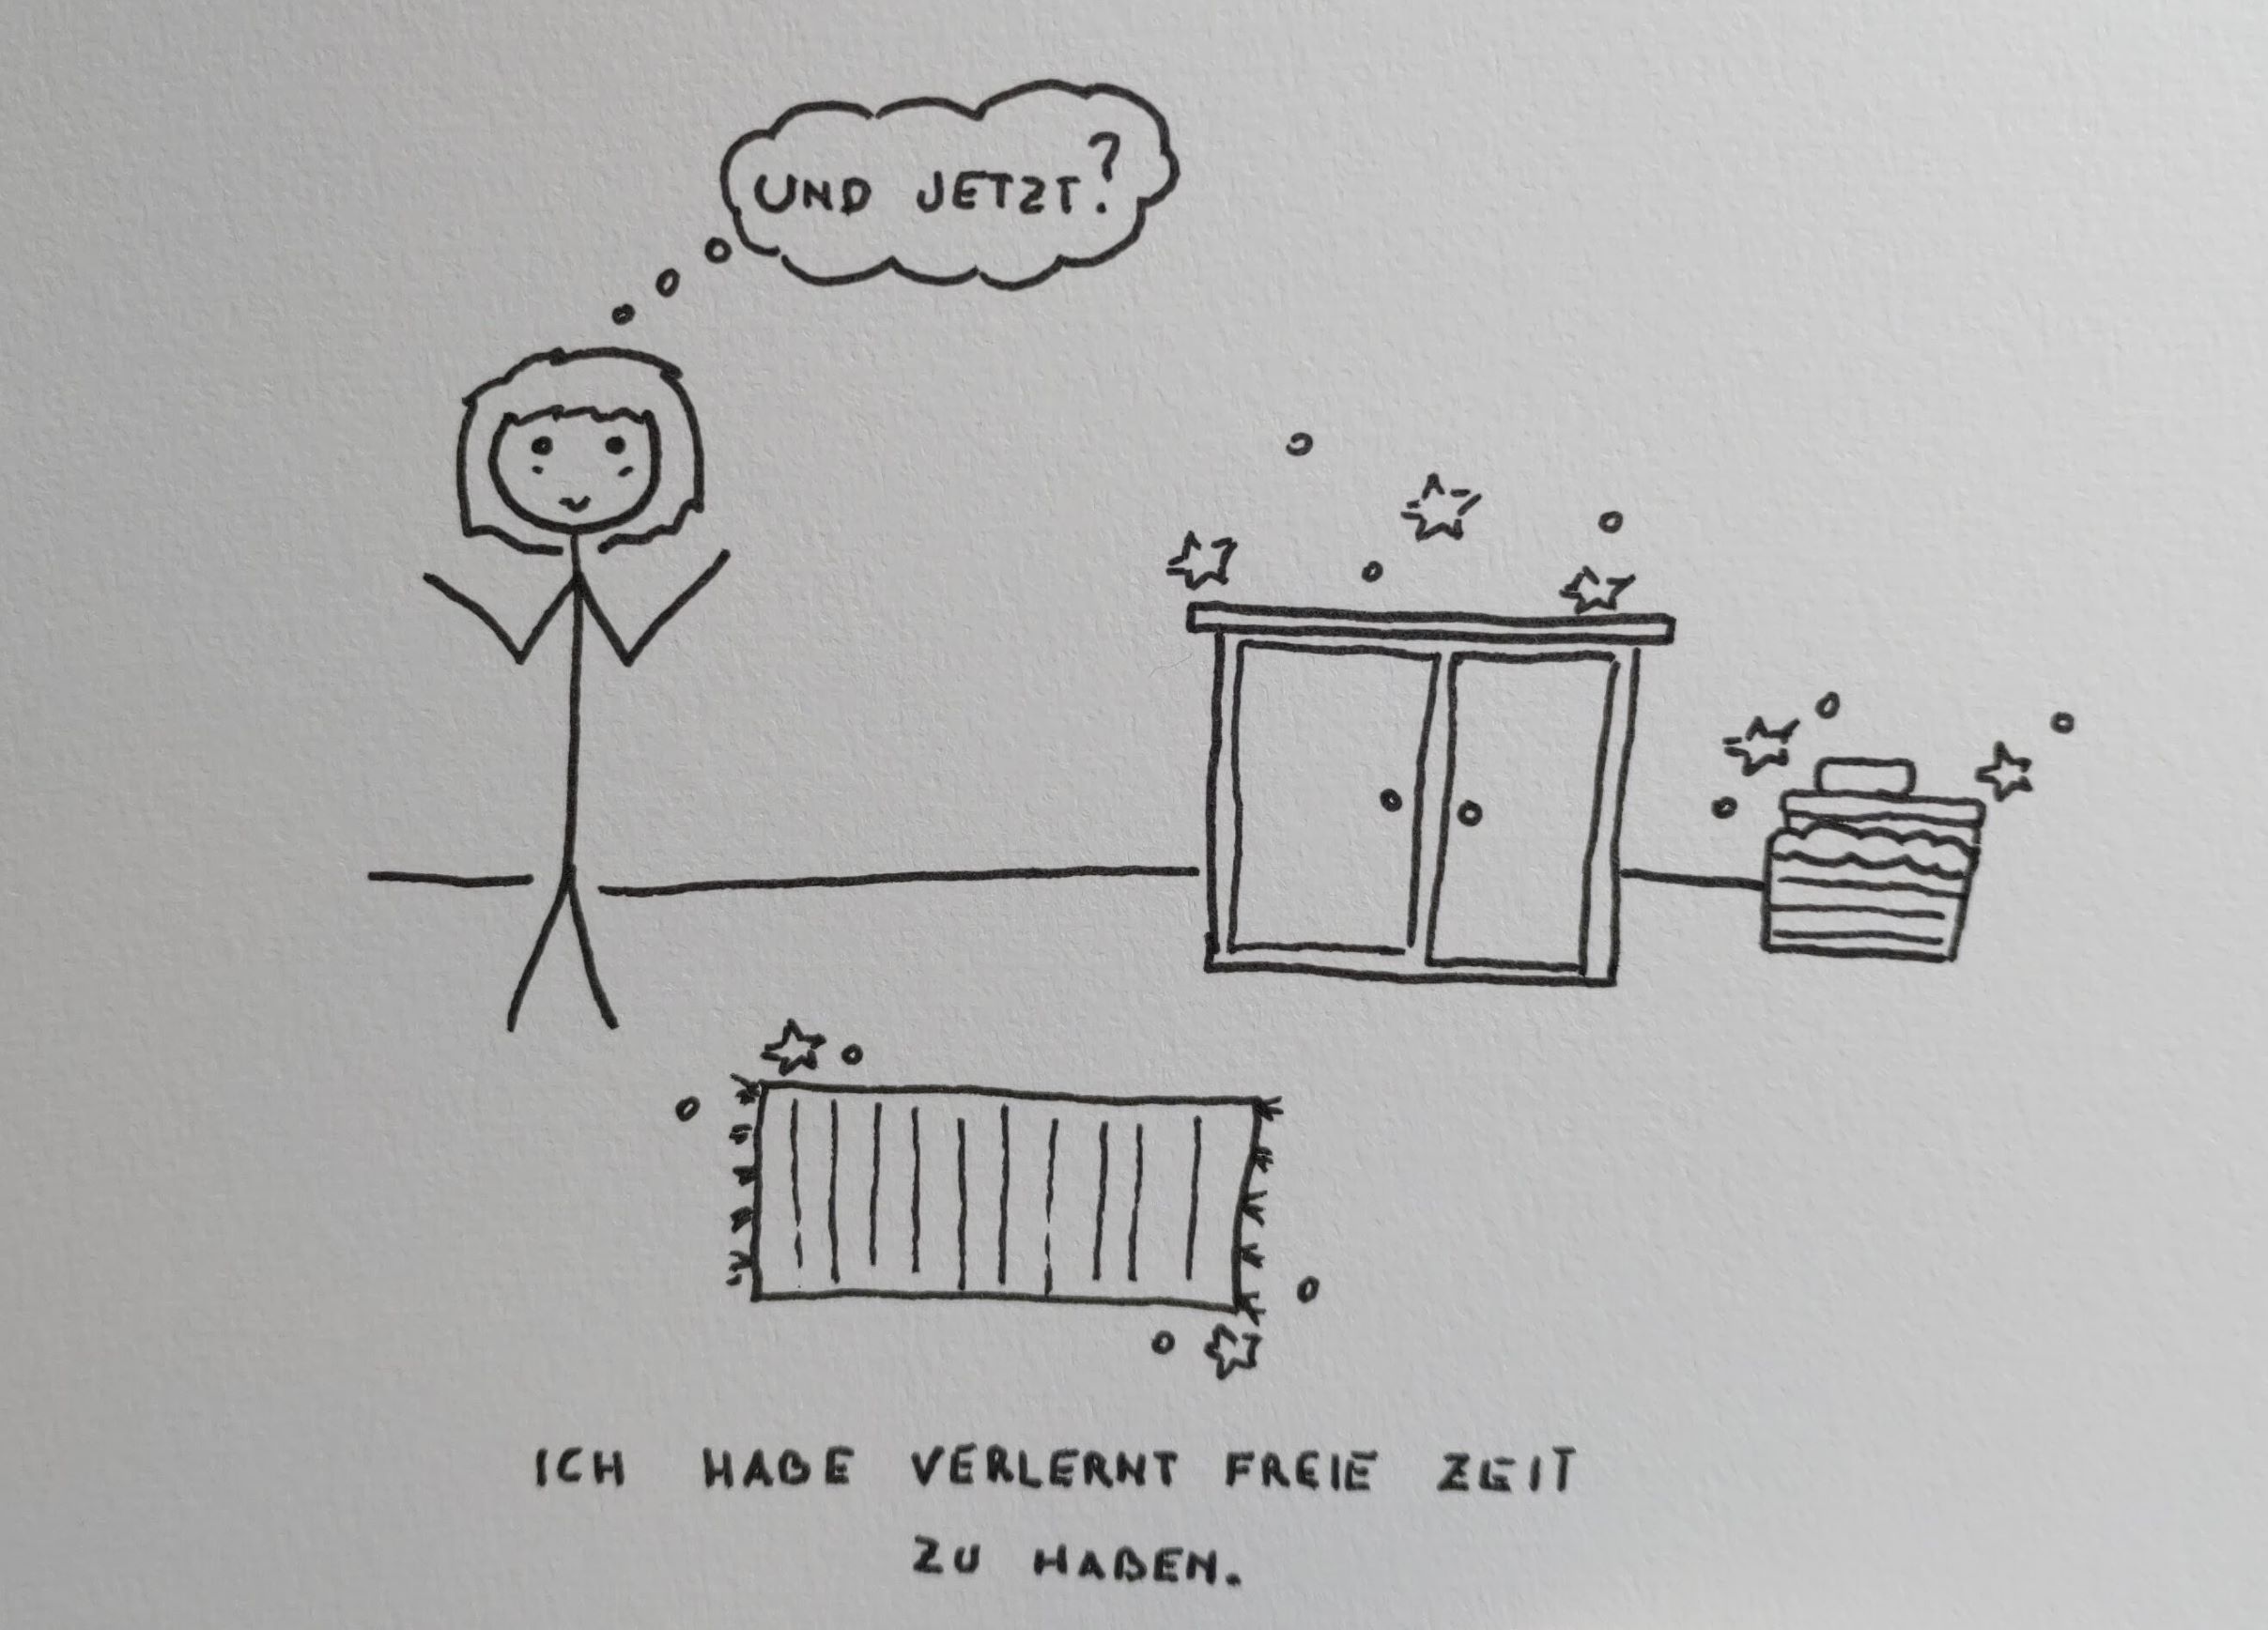 UND JETZT?
ICH HABE VERLERNT FREIE ZEIT
ZU HABEN.